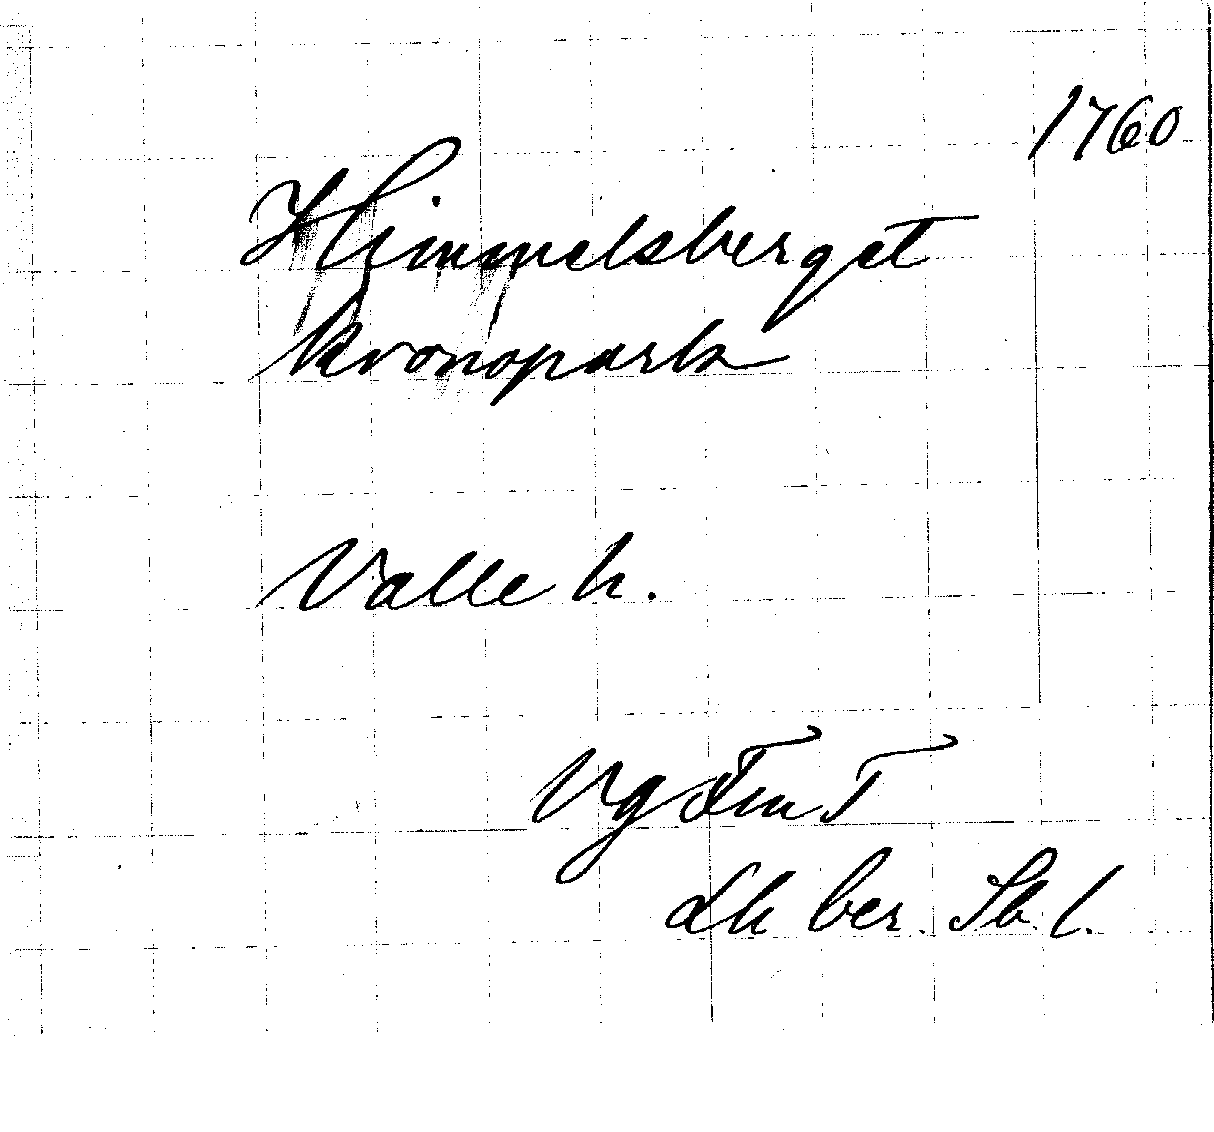 1760
Himmelsberget
kronopark
Valle h.
Vg Fm T
Lh ber. Sb. l.